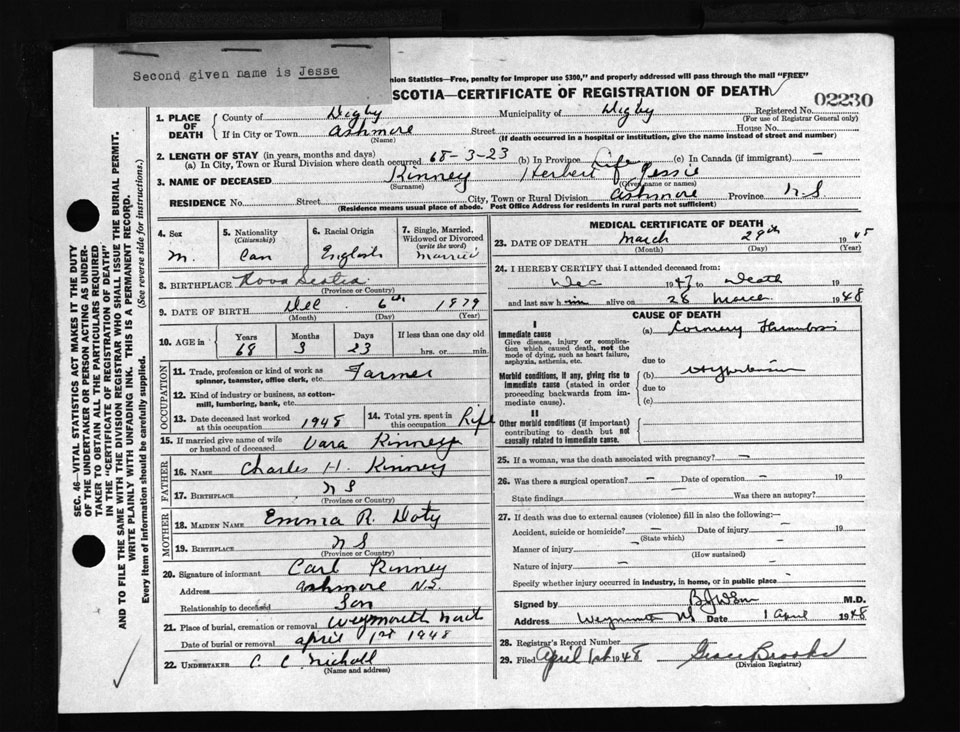 Second given name is Jesse
nion Statistics—Free, penalty for improper use $300," and properly addressed will pass through the mail "FREE"
SCOTIA—CERTIFICATE OF REGISTRATION OF DEATH
02230
1. PLACE OF DEATH County of Digby Municipality of Digby Registered No.
(For use of Registrar General only)
If in City or Town Ashmore Street House No.
(Name) (If death occurred in a hospital or institution, give the name instead of street and number)
2. LENGTH OF STAY (in years, months and days)
(a) In City, Town or Rural Division where death occurred 68-3-23 (b) In Province Life (c) In Canada (if immigrant) —
3. NAME OF DECEASED Kinney Herbert Jessie
(Surname) (Given name or names)
RESIDENCE No. Street City, Town or Rural Division Ashmore Province N S
(Residence means usual place of abode. Post Office Address for residents in rural parts not sufficient)
4. Sex
M.
5. Nationality
(Citizenship)
Can
6. Racial Origin
English
7. Single, Married, Widowed or Divorced
(write the word)
Married
8. BIRTHPLACE Nova Scotia
(Province or Country)
9. DATE OF BIRTH Dec 6th 1879
(Month) (Day) (Year)
10. AGE in Years Months Days If less than one day old
68 3 23 hrs. or min.
OCCUPATION
11. Trade, profession or kind of work as
spinner, teamster, office clerk, etc. Farmer
12. Kind of industry or business, as cotton-
mill, lumbering, bank, etc.
13. Date deceased last worked
at this occupation 1948
14. Total yrs. spent in
this occupation
15. If married give name of wife
or husband of deceased Kinney
FATHER
16. NAME Charles H. Kinney
17. BIRTHPLACE N S
(Province or Country)
MOTHER
18. MAIDEN NAME Emma R. Doty
19. BIRTHPLACE N S
(Province or Country)
20. Signature of informant Carl Kinney
Address Ashmore N.S.
Relationship to deceased Son
21. Place of burial, cremation or removal Weymouth
Date of burial or removal April 1st 1948
22. UNDERTAKER C. C. Nicholl
(Name and address)
MEDICAL CERTIFICATE OF DEATH
23. DATE OF DEATH March 29th 19
(Month) (Day) (Year)
24. I HEREBY CERTIFY that I attended deceased from
Dec 1947 to Death
and last saw him alive on 28 March 1948
CAUSE OF DEATH
I
Immediate cause
Give disease, injury or complica-
tion which caused death, not the
mode of dying, such as heart failure,
asphyxia, asthenia, etc.
(a) Coronary Thrombosis
due to
Morbid conditions, if any, giving rise to
immediate cause (stated in order
proceeding backwards from im-
mediate cause).
(b) Hypertension
due to
(c)
II
Other morbid conditions (if important)
contributing to death but not
causally related to immediate cause.
25. If a woman, was the death associated with pregnancy? —
26. Was there a surgical operation? — Date of operation — 19
State findings Was there an autopsy?
27. If death was due to external causes (violence) fill in also the following:—
Accident, suicide or homicide? — Date of injury — 19
(State which)
Manner of injury —
(How sustained)
Nature of injury —
Specify whether injury occurred in industry, in home, or in public place —
Signed by M.D.
Address Weymouth NS Date 1 April 1948
28. Registrar's Record Number
29. Filed April 1st 1948 Grace Brooks
(Division Registrar)
SEC. 46—VITAL STATISTICS ACT MAKES IT THE DUTY
OF THE UNDERTAKER OR PERSON ACTING AS UNDER-
TAKER TO OBTAIN ALL THE PARTICULARS REQUIRED
IN THE "CERTIFICATE OF REGISTRATION OF DEATH"
AND TO FILE THE SAME WITH THE DIVISION REGISTRAR WHO SHALL ISSUE THE BURIAL PERMIT.
WRITE PLAINLY WITH UNFADING INK. THIS IS A PERMANENT RECORD.
Every item of information should be carefully supplied. (See reverse side for instructions.)